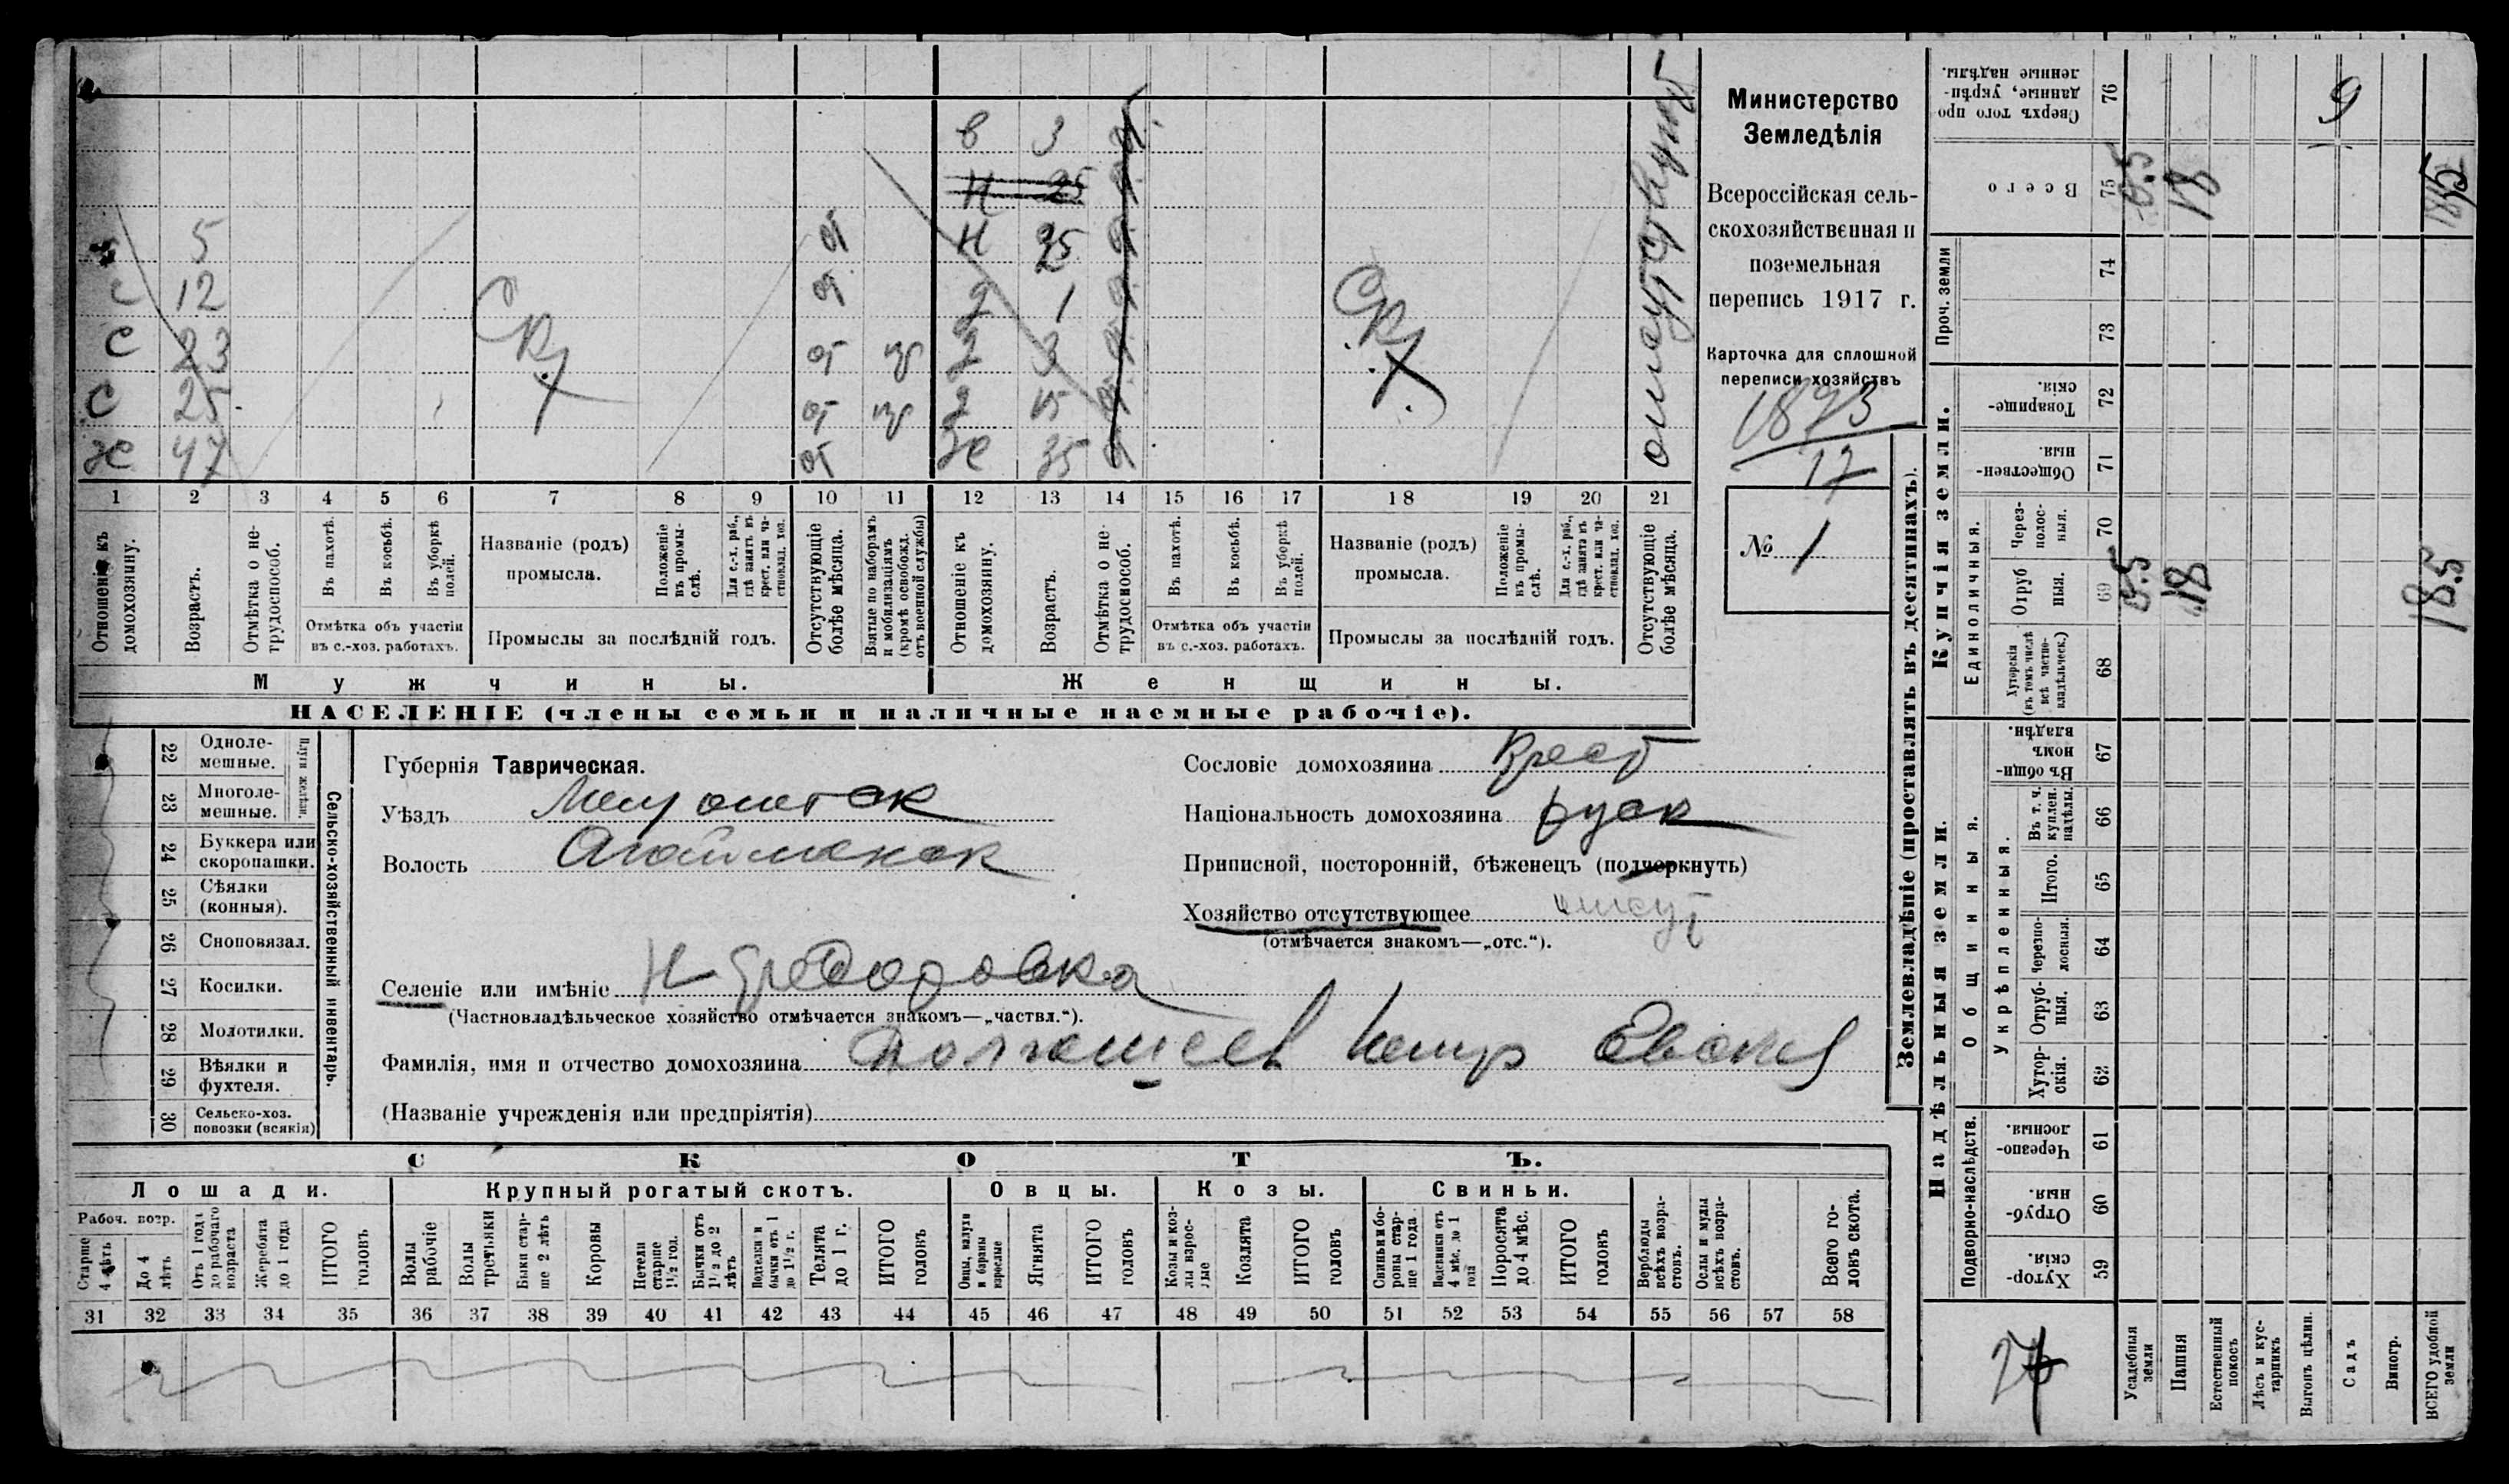 в 3 от
Н 25 от
5 от Н 25 от
с 12 от д 1 от
с 23 от пр д 3 от
с 25 от пр д 15 от
ж 47 от ж 35 от
отсутствует
1 2 3 4 5 6 7 8 9 10 11 12 13 14 15 16 17 18 19 20 21
Отношеніе къ домохозяину.
Возрастъ.
Отмѣтка о нетрудоспособ.
Въ пахотѣ.
Въ косьбѣ.
Въ уборкѣ полей.
Отмѣтка объ участіи
въ с.-хоз. работахъ.
Названіе (родъ)
промысла.
Положеніе въ промыслѣ.
Для с.-х. раб., гдѣ занятъ въ крест. или частновлад. хоз.
Промыслы за послѣдній годъ.
Отсутствующіе болѣе мѣсяца.
Взятые по наборамъ и мобилизаціямъ (кромѣ освобожд. отъ военной службы)
Отношеніе къ домохозяину.
Возрастъ.
Отмѣтка о нетрудоспособ.
Въ пахотѣ.
Въ косьбѣ.
Въ уборкѣ полей.
Отмѣтка объ участіи
въ с.-хоз. работахъ.
Названіе (родъ)
промысла.
Положеніе въ промыслѣ.
Для с.-х. раб., гдѣ занята въ крест. или частновлад. хоз.
Промыслы за послѣдній годъ.
Отсутствующіе болѣе мѣсяца.
Мужчины. Женщины.
НАСЕЛЕНІЕ (члены семьи и наличные наемные рабочіе).
Министерство
Земледѣлія
Всероссійская сель-
скохозяйственная и
поземельная
перепись 1917 г.
Карточка для сплошной
переписи хозяйствъ
1873
17
№ 1
22 Одноле-
мешные.
23 Многоле-
мешные.
Плуги желѣзн.
24 Буккера или
скоропашки.
25 Сѣялки
(конныя).
26 Сноповязал.
27 Косилки.
28 Молотилки.
29 Вѣялки и
фухтеля.
30 Сельско-хоз.
повозки (всякія)
Сельско-хозяйственный инвентарь.
Губернія Таврическая.
Уѣздъ Мелитопск
Волость Агайманск
Сословіе домохозяина Крест
Національность домохозяина руск
Приписной, посторонній, бѣженецъ (подчеркнуть)
Хозяйство отсутствующее
(отмѣчается знакомъ—„отс.“).
Селеніе или имѣніе Н Федоровка
(Частновладѣльческое хозяйство отмѣчается знакомъ—„частвл.“).
Фамилія, имя и отчество домохозяина
(Названіе учрежденія или предпріятія)
СКОТЪ.
Лошади. Крупный рогатый скотъ. Овцы. Козы. Свиньи.
Рабоч. возр.
Старше 4 лѣтъ
До 4 лѣтъ
Отъ 1 года до рабочаго возраста
Жеребята до 1 года
ИТОГО головъ
Волы рабочіе
Волы третьяки
Быки старше 2 лѣтъ
Коровы
Нетели старше 1½ год.
Бычки отъ 1½ до 2 лѣтъ
Подтелки и бычки отъ 1 до 1½ г.
Телята до 1 г.
ИТОГО головъ
Овцы, валухи и бараны взрослые
Ягнята
ИТОГО головъ
Козы и козлы взрослые
Козлята
ИТОГО головъ
Свиньи и боровы старше 1 года
Подсвинки отъ 4 мѣс. до 1 года
Поросята до 4 мѣс.
ИТОГО головъ
Верблюды всѣхъ возрастовъ.
Ослы и мулы всѣхъ возрастовъ.
Всего головъ скота.
31 32 33 34 35 36 37 38 39 40 41 42 43 44 45 46 47 48 49 50 51 52 53 54 55 56 57 58
Землевладѣніе (проставлять въ десятинахъ).
Купчія земли.
Надѣльныя земли.
Сверхъ того проданные, укрѣпленные надѣлы. 76 9
Всего 75 0.5 18 18.5
Проч. земли 74
73
Товарищескія. 72
Общественныя. 71
Единоличныя.
Черезполосныя. 70
Отрубныя. 69 0.5 18 18.5
Хуторскія (въ томъ числѣ всѣ частновладѣльческ.) 68
Общинныя.
Въ общинномъ владѣн. 67
Укрѣпленныя.
Въ т. ч. куплен. надѣлы. 66
Итого. 65
Черезполосныя. 64
Отрубныя. 63
Хуторскія. 62
Подворно-наслѣдств.
Черезполосныя. 61
Отрубныя. 60
Хуторскія. 59
Усадебныя земли
Пашня
Естественный покосъ
Лѣсъ и кустарникъ
Выгонъ цѣлин.
Садъ
Виногр.
ВСЕГО удобной земли